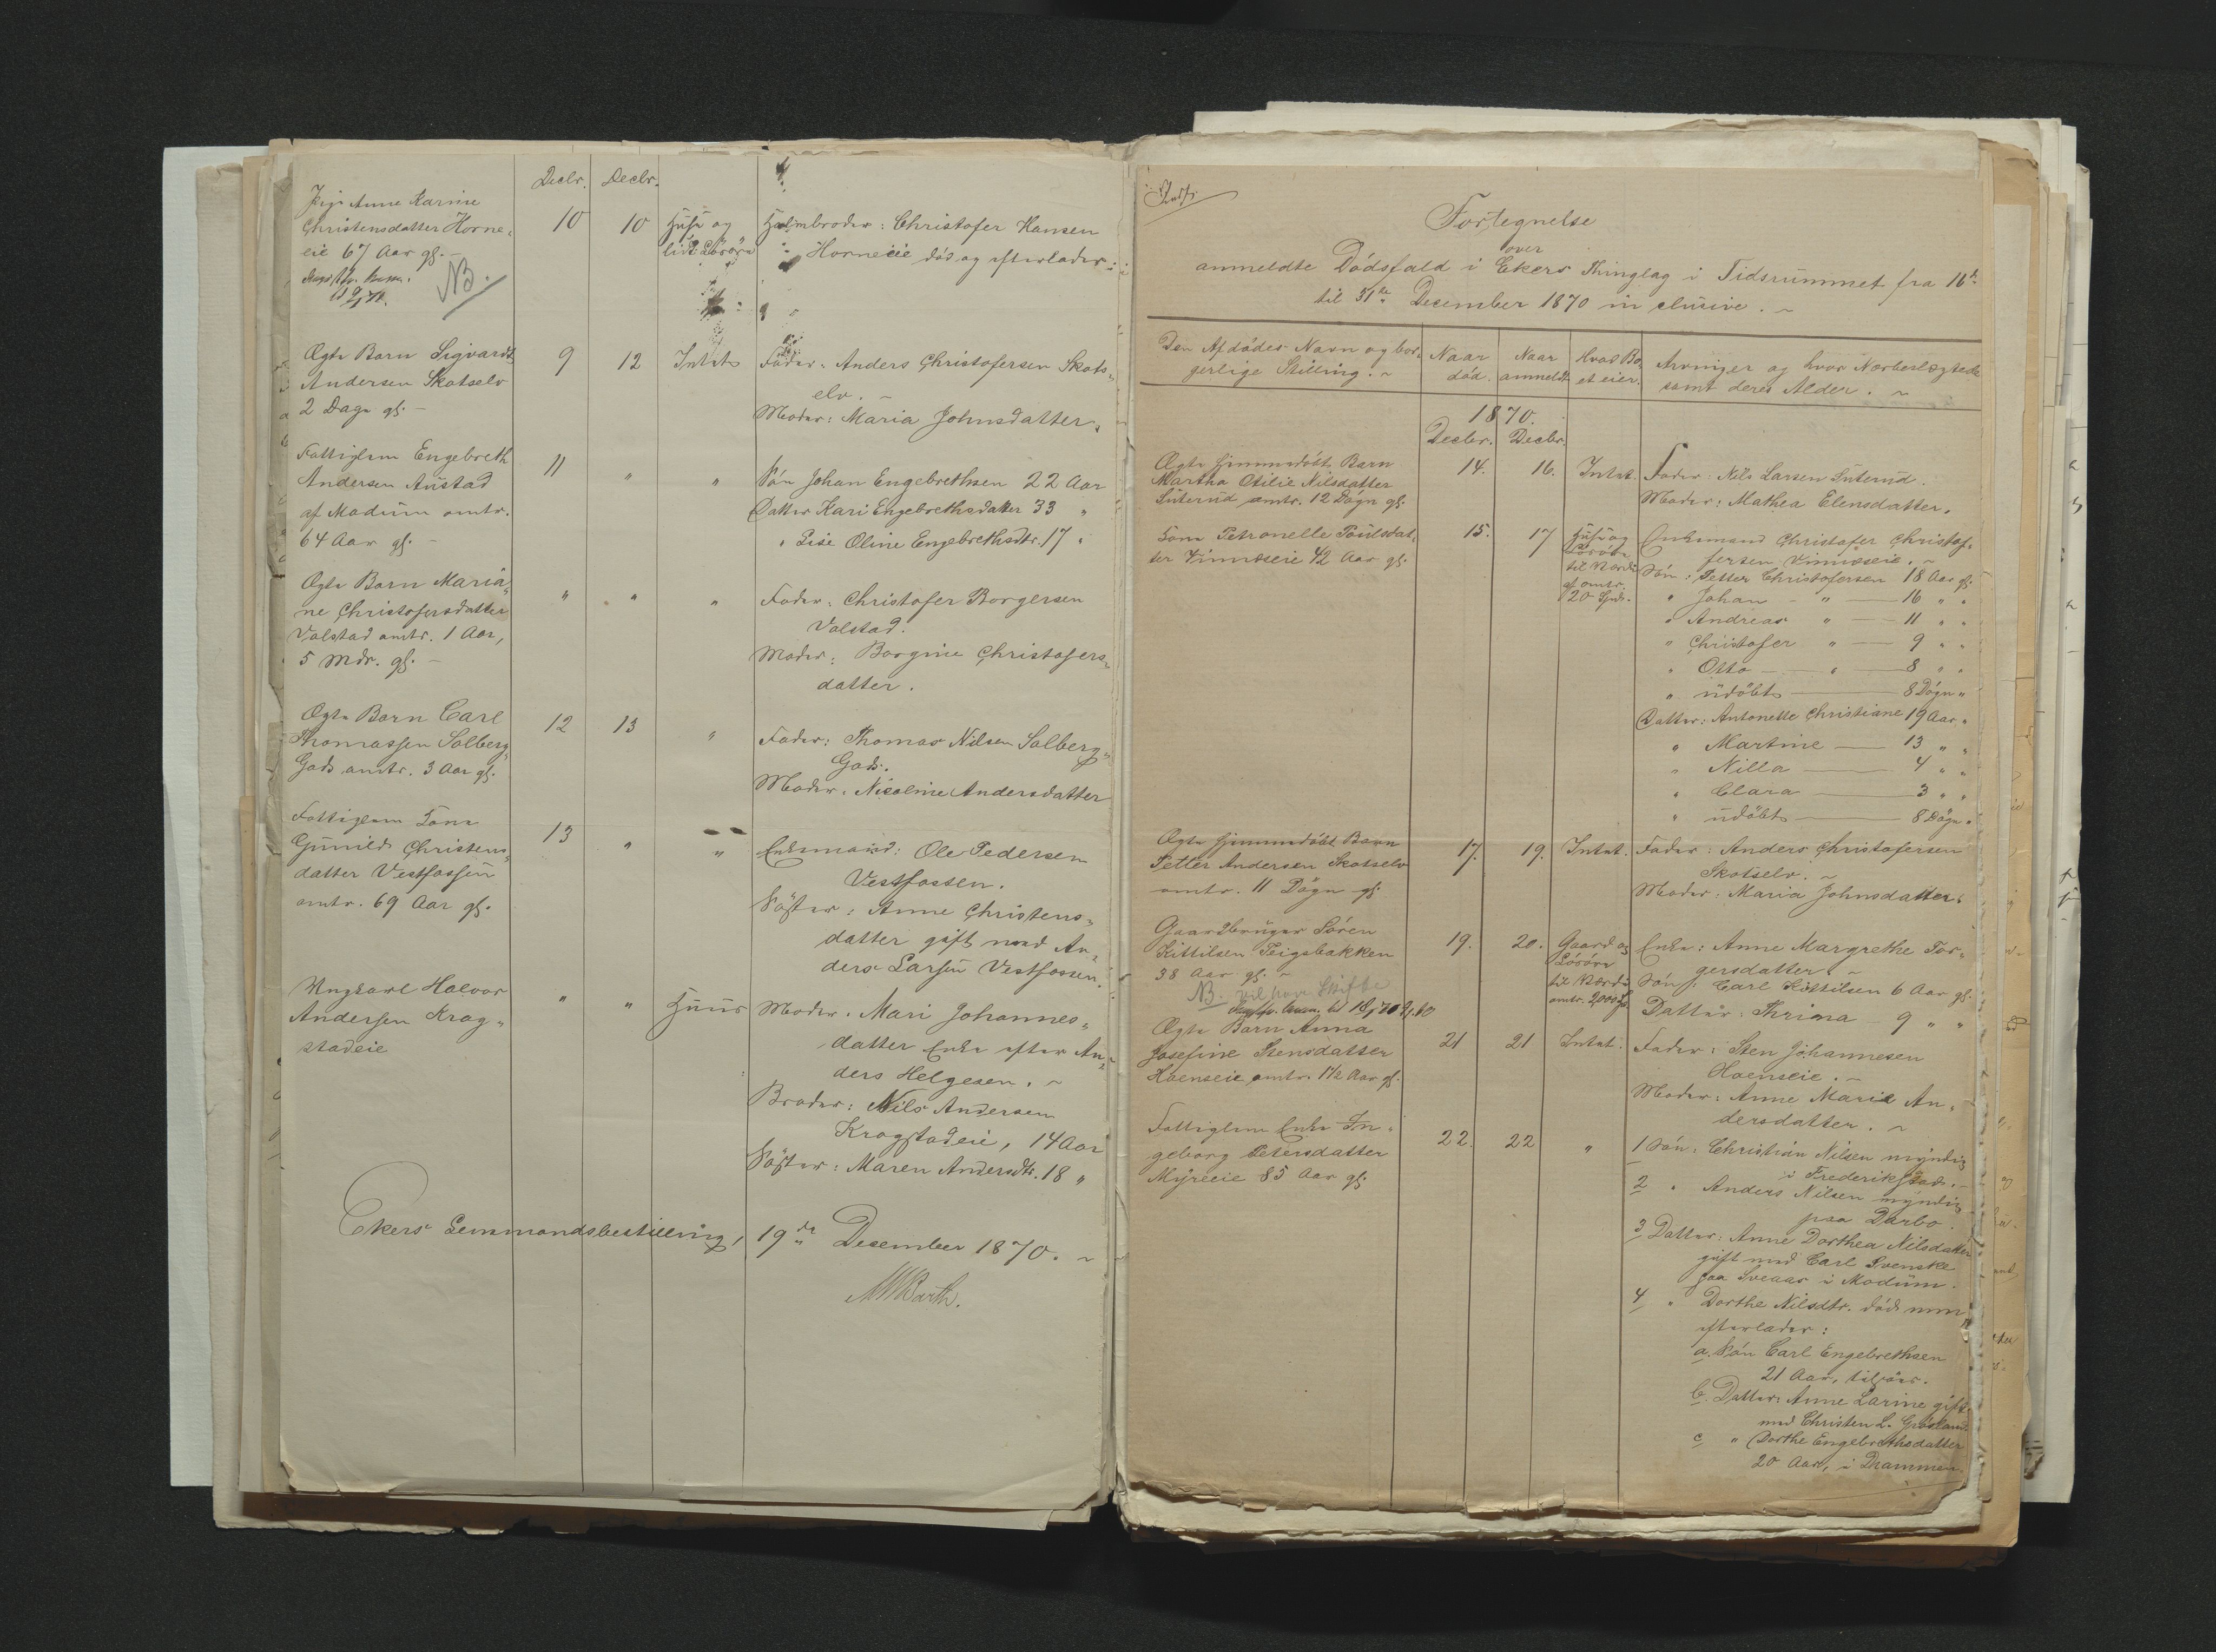 Decbr. Decbr.
Pige Anne Karine
Christensdatter Horne-
eie 67 Aar gl. -
NB.
10 10 Huse og
lidt Lösöre
Halvbroder: Christofer Hansen
Horneeie död og efterlader:
Ægte Barn Sigvardt
Andersen Skotselv
2 Dage gl. -
9 12 Intet
Fader: Anders Christofersen Skots-
elv. ~
Moder: Maria Johnsdatter.
Fattiglem Engebreth
Andersen Austad
af Modum omtr.
64 Aar gl. -
11 " "
Sön Johan Engebrethsen 22 Aar
Datter Kari Engebrethsdatter 33 "
" Lise Oline Engebrethsdtr. 17 "
Ægte Barn Maria-
ne Christofersdatter
Valstad omtr. 1 Aar,
5 Mdr. gl. -
" " "
Fader: Christofer Borgersen
Valstad.
Moder: Borgine Christofers-
datter.
Ægte Barn Carl
Thomassen Solberg-
Gods omtr. 3 Aar gl.
12 13 "
Fader: Thomas Nilsen Solberg-
Gods.
Moder: Nicoline Andersdatter
Fattiglem Kone
Gunild Christens-
datter Vestfossen
omtr. 69 Aar gl.
13 " "
Enkemand: Ole Pedersen
Vestfossen.
Söster: Anne Christens-
datter gift med An-
ders Larsen Vestfossen.
Ungkarl Halvor
Andersen Krog-
stadeie
" " Huus
Moder: Mari Johannes-
datter Enke efter An-
ders Helgesen. ~
Broder: Nils Andersen
Krogstadeie, 14 Aar
Söster: Maren Andersdtr. 18 "
Ekers Lensmandsbestilling, 19de December 1870. ~
Barth.
Fortegnelse
over
anmeldte Dödsfald i Ekers Thinglag i Tidsrummet fra 16de
til 31te December 1870 inclusive. ~
Den Afdödes Navn og bor-
gerlige Stilling. ~
Naar
död.
Naar
anmeldt
Hvad Bo-
et eier.
Arvinger og hvor Nærbeslægtede
samt deres Alder. ~
1870.
Decbr. Decbr.
Ægte hjemmedöbt Barn
Martha Otilie Nilsdatter
Suterud omtr. 12 Dögn gl.
14. 16. Intet.
Fader: Nils Larsen Suterud.
Moder: Mathea Elensdatter.
Kone Petronelle Poulsdat-
ter Vinnæseie 42 Aar gl.
15. 17
Huse og
Lösöre
til Værdi
af omtr.
120 Spd.
Enkemand Christofer Christof-
fersen Vinnæseie. ~
Sön: Petter Christofersen 18 Aar gl.
" Johan " 16 " "
" Andreas " 11 " "
" Christofer " 9 " "
" Otto " 8 " "
" udöbt 8 Dögn "
Datter: Antonette Christiane 19 Aar "
" Martine 13 " "
" Nilla 4 " "
" Clara 3 " "
" udöbt 8 Dögn "
Ægte hjemmedöbt Barn
Petter Andersen Skotselv
omtr. 11 Dögn gl.
17. 19. Intet.
Fader: Anders Christofersen
Skotselv. ~
Moder: Maria Johnsdatter.
Gaardbruger Sören
Kittilsen Teigsbakken
38 Aar gl. ~
NB. vil have Skifte
19. 20.
Gaard og
Lösöre
til Værdi
omtr. 2,000 Spd.
Enke: Anne Margrethe Tor-
gersdatter. ~
Sön: Carl Kittilsen 6 Aar gl.
Datter: Thrina 9 " "
Ægte Barn Anna
Josefine Stensdatter
Hoenseie omtr. 1 1/2 Aar gl.
21 21 Intet.
Fader: Sten Johannesen
Hoenseie. ~
Moder: Anne Marie An-
dersdatter. ~
Fattiglem Enke In-
geborg Petersdatter
Myreeie 85 Aar gl.
22. 22 "
1 Sön: Christian Nilsen myndig
i Frederikstad. -
2 " Anders Nilsen myndig
paa Darbo.
3 Datter: Anne Dorthea Nilsdatter
gift med Carl Svenske
paa Sveaas i Modum.
4 " Dorthe Nilsdtr. död men
efterlader:
a. Sön Carl Engebrethsen
21 Aar, tilsöes.
b. Datter: Anne Larine gift
med Christen L.
c " Dorthe Engebrethsdatter
20 Aar, i Drammen.